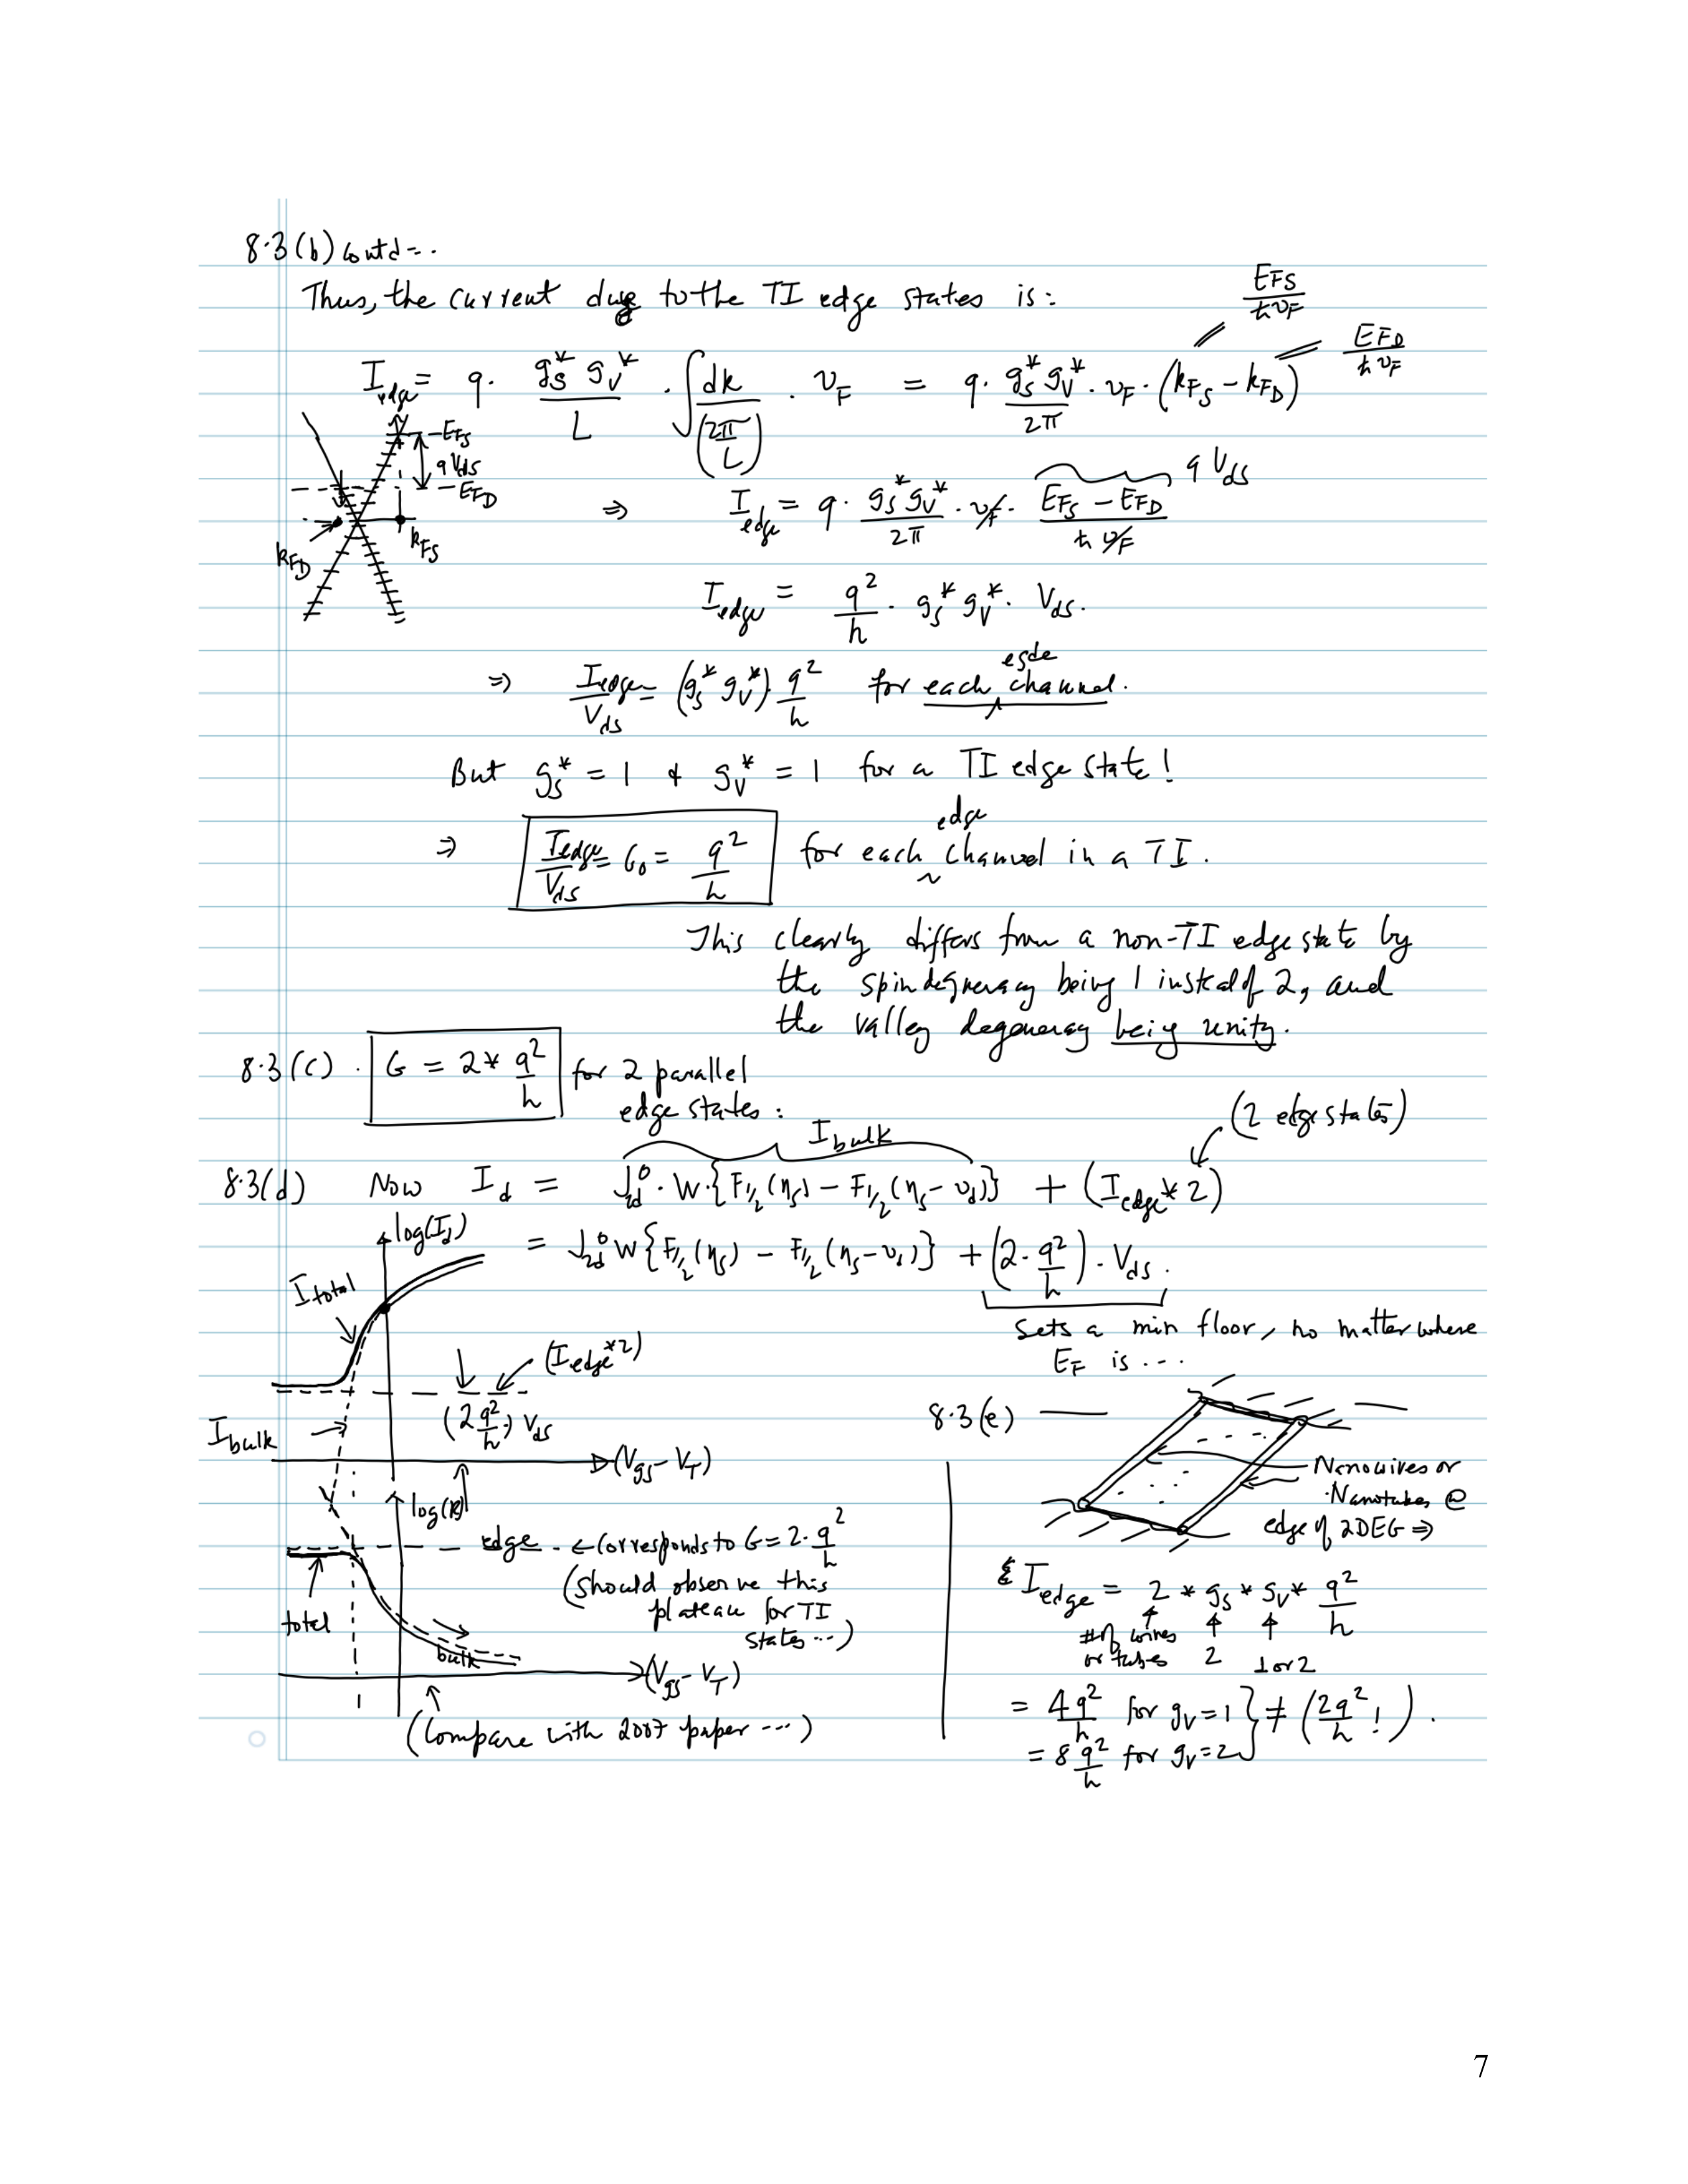 8.3(b) contd...
Thus, the current due to the TI edge states is:
I_edge = q · g_s* g_v* / L · ∫ dk / (2π/L) · v_F = q · g_s* g_v* / 2π · v_F · (k_FS − k_FD)
E_FS / ħv_F
E_FD / ħv_F
E_FS
qV_ds
E_FD
k_FD
k_FS
⇒ I_edge = q · g_s* g_v* / 2π · v_F · (E_FS − E_FD) / ħv_F
qV_ds
I_edge = q²/h · g_s* g_v* · V_ds.
⇒ I_edge / V_ds = (g_s* g_v*) q²/h for each egde channel.
But g_s* = 1 & g_v* = 1 for a TI edge state!
⇒ I_edge / V_ds = G_0 = q²/h for each edge channel in a TI.
This clearly differs from a non-TI edge state by
the spin degneracy being 1 instead of 2, and
the valley degeneracy being unity.
8.3(c) · G = 2 * q²/h for 2 parallel
edge states:
I_bulk
(2 edge states)
8.3(d) Now I_d = J_2d^0 · W · {F_1/2(η_s) − F_1/2(η_s − v_d)} + (I_edge * 2)
= J_2d^0 W {F_1/2(η_s) − F_1/2(η_s − v_d)} + (2 · q²/h) · V_ds.
Sets a min floor, no matter where
E_F is ...
log(I_d)
I_total
(I_edge*2)
(2 q²/h) V_ds
I_bulk
(V_gs − V_T)
log(R)
edge ← Corresponds to G = 2 · q²/h
(Should observe this
plateau for TI
states ...)
total
bulk
(V_gs − V_T)
(Compare with 2007 paper ...)
8.3(e)
Nanowires or
Nanotubes @
edge of 2DEG ⇒
& I_edge = 2 * g_s * g_v * q²/h
# of wires
or tubes
2
1 or 2
= 4q²/h for g_v = 1 } ≠ (2q²/h !).
= 8 q²/h for g_v = 2
7